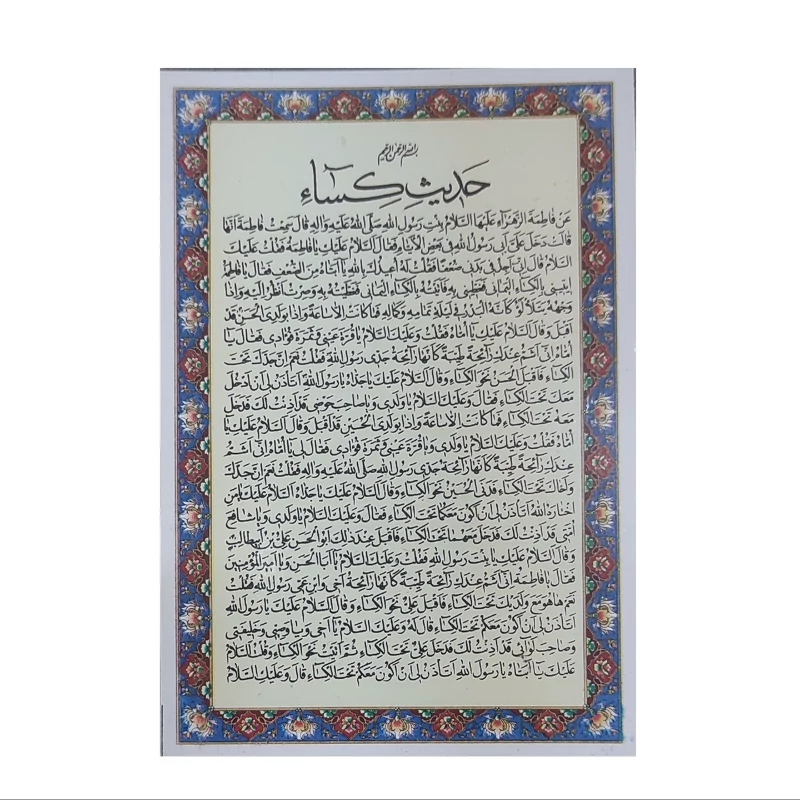 بسم الله الرحمن الرحیم
حَدیثِ کِسٰاءِ
عَنْ فاطِمَةَ الزَّهْراءِ عَلَیْهَا السَّلامُ بِنْتِ رَسُولِ اللهِ صَلَّی اللهُ عَلَیْهِ وَالِهِ قالَ سَمِعْتُ فاطِمَةَ اَنَّها
قالَتْ دَخَلَ عَلَیَّ اَبی رَسُولُ اللهِ فی بَعْضِ الْاَیّامِ فَقالَ السَّلامُ عَلَیْكِ یا فاطِمَةُ فَقُلْتُ عَلَیْكَ
السَّلامُ قالَ اِنّی اَجِدُ فی بَدَنی ضُعْفاً فَقُلْتُ لَهُ اُعیذُكَ بِاللهِ یا اَبَتاهُ مِنَ الضُّعْفِ فَقالَ یا فاطِمَةُ
ایتینی بِالْکِساءِ الْیَمانی فَغَطّینی بِهِ فَاَتَیْتُهُ بِالْکِساءِ الْیَمانی فَغَطَّیْتُهُ بِهِ وَصِرْتُ اَنْظُرُ اِلَیْهِ وَاِذا
وَجْهُهُ یَتَلَأْلَؤُ کَاَنَّهُ الْبَدْرُ فی لَیْلَةِ تَمامِهِ وَکَمالِهِ فَما کانَتْ اِلّا ساعَةً وَاِذا بِوَلَدِیَ الْحَسَنِ قَدْ
اَقْبَلَ وَقالَ السَّلامُ عَلَیْكِ یا اُمّاهُ فَقُلْتُ وَعَلَیْكَ السَّلامُ یا قُرَّةَ عَیْنی وَثَمَرَةَ فُؤادی فَقالَ یا
اُمّاهُ اِنّی اَشَمُّ عِنْدَكِ رائِحَةً طَیِّبَةً کَاَنَّها رائِحَةُ جَدّی رَسُولِ اللهِ فَقُلْتُ نَعَمْ اِنَّ جَدَّكَ تَحْتَ
الْکِساءِ فَاَقْبَلَ الْحَسَنُ نَحْوَ الْکِساءِ وَقالَ السَّلامُ عَلَیْكَ یا جَدّاهُ یا رَسُولَ اللهِ اَتَأْذَنُ لی اَنْ اَدْخُلَ
مَعَكَ تَحْتَ الْکِساءِ فَقالَ وَعَلَیْكَ السَّلامُ یا وَلَدی وَیا صاحِبَ حَوْضی قَدْ اَذِنْتُ لَكَ فَدَخَلَ
مَعَهُ تَحْتَ الْکِساءِ فَما کانَتْ اِلّا ساعَةً وَاِذا بِوَلَدِیَ الْحُسَیْنِ قَدْ اَقْبَلَ وَقالَ السَّلامُ عَلَیْكِ یا
اُمّاهُ فَقُلْتُ وَعَلَیْكَ السَّلامُ یا وَلَدی وَیا قُرَّةَ عَیْنی وَثَمَرَةَ فُؤادی فَقالَ لی یا اُمّاهُ اِنّی اَشَمُّ
عِنْدَكِ رائِحَةً طَیِّبَةً کَاَنَّها رائِحَةُ جَدّی رَسُولِ اللهِ صَلَّی اللهُ عَلَیْهِ وَالِهِ فَقُلْتُ نَعَمْ اِنَّ جَدَّكَ
وَاَخاكَ تَحْتَ الْکِساءِ فَدَنَی الْحُسَیْنُ نَحْوَ الْکِساءِ وَقالَ السَّلامُ عَلَیْكَ یا جَدّاهُ السَّلامُ عَلَیْكَ یا مَنِ
اخْتارَهُ اللهُ اَتَأْذَنُ لی اَنْ اَکُونَ مَعَکُما تَحْتَ الْکِساءِ فَقالَ وَعَلَیْكَ السَّلامُ یا وَلَدی وَیا شافِعَ
اُمَّتی قَدْ اَذِنْتُ لَكَ فَدَخَلَ مَعَهُما تَحْتَ الْکِساءِ فَاَقْبَلَ عِنْدَ ذلِكَ اَبُو الْحَسَنِ عَلِیُّ بْنُ اَبیطالِبٍ
وَقالَ السَّلامُ عَلَیْكِ یا بِنْتَ رَسُولِ اللهِ فَقُلْتُ وَعَلَیْكَ السَّلامُ یا اَبَا الْحَسَنِ وَیا اَمیرَ الْمُؤْمِنینَ
فَقالَ یا فاطِمَةُ اِنّی اَشَمُّ عِنْدَكِ رائِحَةً طَیِّبَةً کَاَنَّها رائِحَةُ اَخی وَابْنِ عَمّی رَسُولِ اللهِ فَقُلْتُ
نَعَمْ ها هُوَ مَعَ وَلَدَیْكَ تَحْتَ الْکِساءِ فَاَقْبَلَ عَلِیٌّ نَحْوَ الْکِساءِ وَقالَ السَّلامُ عَلَیْكَ یا رَسُولَ اللهِ
اَتَأْذَنُ لی اَنْ اَکُونَ مَعَکُمْ تَحْتَ الْکِساءِ قالَ لَهُ وَعَلَیْكَ السَّلامُ یا اَخی وَیا وَصِیّی وَخَلیفَتی
وَصاحِبَ لِوائی قَدْ اَذِنْتُ لَكَ فَدَخَلَ عَلِیٌّ تَحْتَ الْکِساءِ ثُمَّ اَتَیْتُ نَحْوَ الْکِساءِ وَقُلْتُ السَّلامُ
عَلَیْكَ یا اَبَتاهُ یا رَسُولَ اللهِ اَتَأْذَنُ لی اَنْ اَکُونَ مَعَکُمْ تَحْتَ الْکِساءِ قالَ وَعَلَیْكِ السَّلامُ